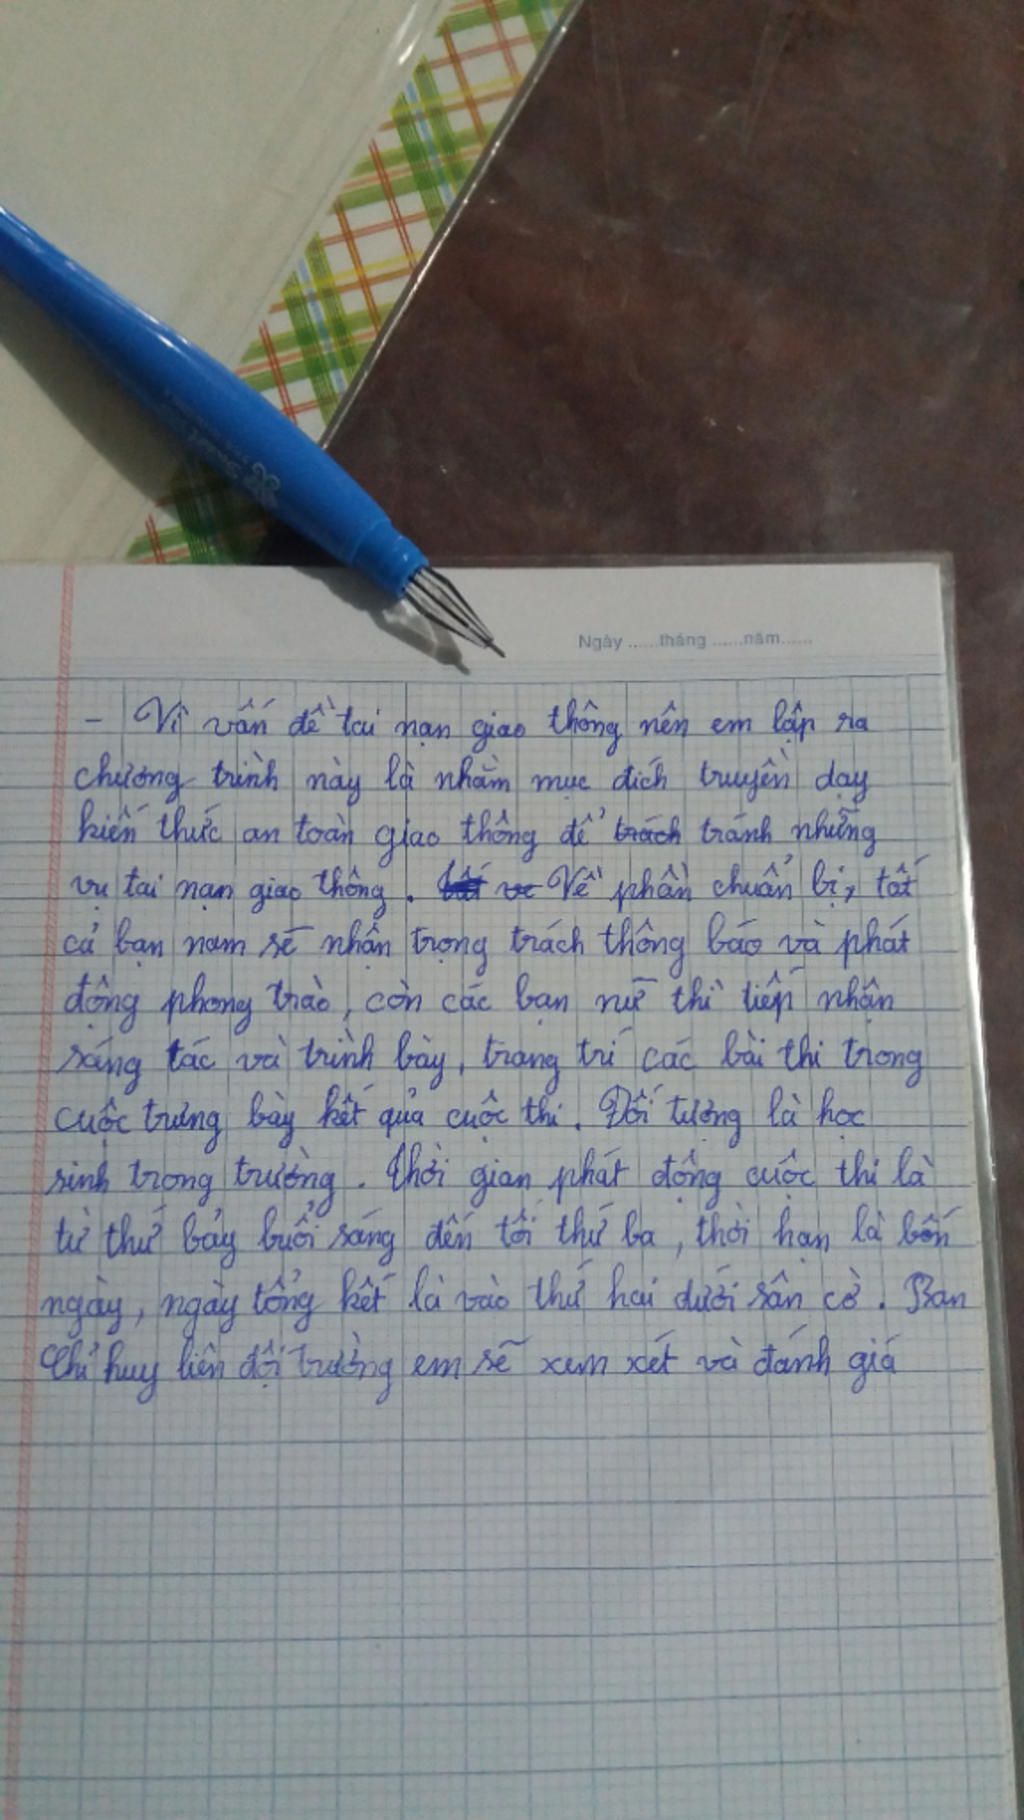 Ngày ......tháng ......năm......
- Vì vấn đề tai nạn giao thông nên em lập ra
chương trình này là nhằm mục đích truyền dạy
kiến thức an toàn giao thông để trách tránh những
vụ tai nạn giao thông. Về phần chuẩn bị, tất
cả bạn nam sẽ nhận trọng trách thông báo và phát
động phong trào, còn các bạn nữ thì tiếp nhận
sáng tác và trình bày, trang trí các bài thi trong
cuộc trưng bày kết quả cuộc thi. Đối tượng là học
sinh trong trường. Thời gian phát động cuộc thi là
từ thứ bảy buổi sáng đến tối thứ ba, thời hạn là bốn
ngày, ngày tổng kết là vào thứ hai dưới sân cờ. Ban
Chỉ huy liên đội trường em sẽ xem xét và đánh giá